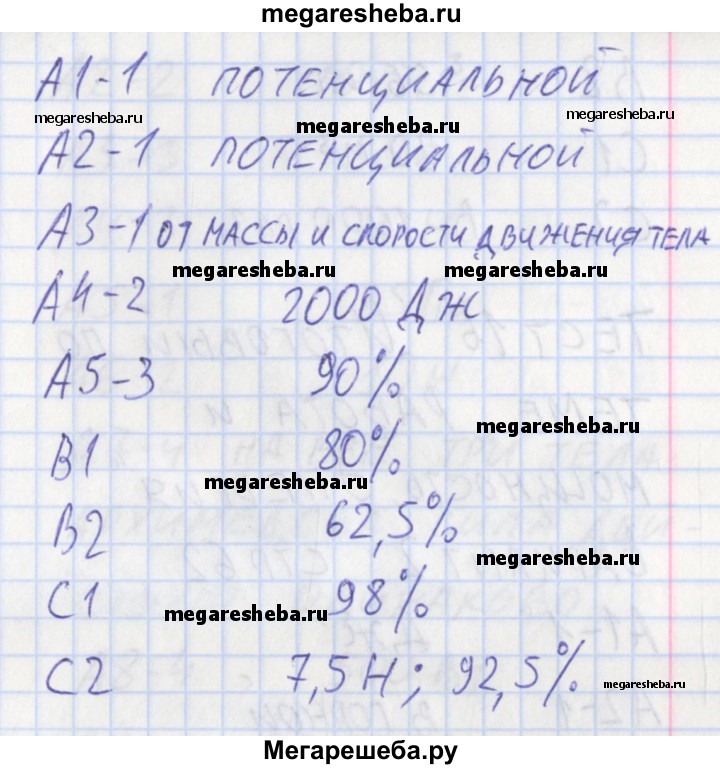 megaresheba.ru
А1-1 ПОТЕНЦИАЛЬНОЙ
megaresheba.ru
megaresheba.ru
megaresheba.ru
А2-1 ПОТЕНЦИАЛЬНОЙ
А3-1 ОТ МАССЫ И СКОРОСТИ ДВИЖЕНИЯ ТЕЛА
megaresheba.ru megaresheba.ru
А4-2 2000 ДЖ
А5-3 90%
megaresheba.ru
В1 80%
megaresheba.ru
В2 62,5%
megaresheba.ru
С1 98%
megaresheba.ru
С2 7,5 Н; 92,5%
megaresheba.ru
Мегарешеба.ру